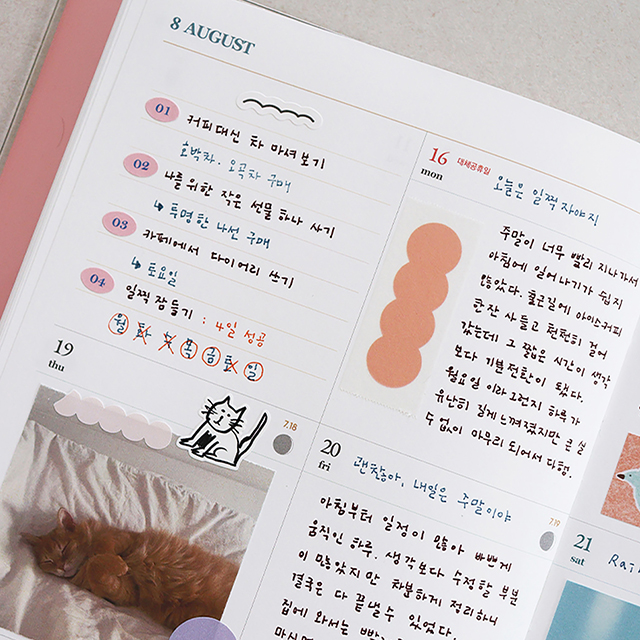 8 AUGUST
01
커피대신 차 마셔보기
호박차, 오곡차 구매
02
나를 위한 작은 선물 하나 사기
↳ 투명한 나선 구매
03
카페에서 다이어리 쓰기
↳ 토요일
04
일찍 잠들기 : 4일 성공
월 화 수 목 금 토 일
16
mon
대체공휴일
오늘은 일찍 자야지
주말이 너무 빨리 지나가서
아침에 일어나기가 쉽지
않았다. 출근길에 아이스커피
한잔 사들고 천천히 걸어
갔는데 그 짧은 시간이 생각
보다 기분전환이 됐다.
월요일이라 그런지 하루가
유난히 길게 느껴졌지만 큰 실
수 없이 마무리 되어서 다행.
19
thu
7.18
20
fri
괜찮아, 내일은 주말이야
7.19
아침부터 일정이 많아 바쁘게
움직인 하루. 생각보다 수정할 부분
이 많았지만 차분하게 정리하니
결국은 다 끝낼 수 있었다.
집에 와서는
21
sat